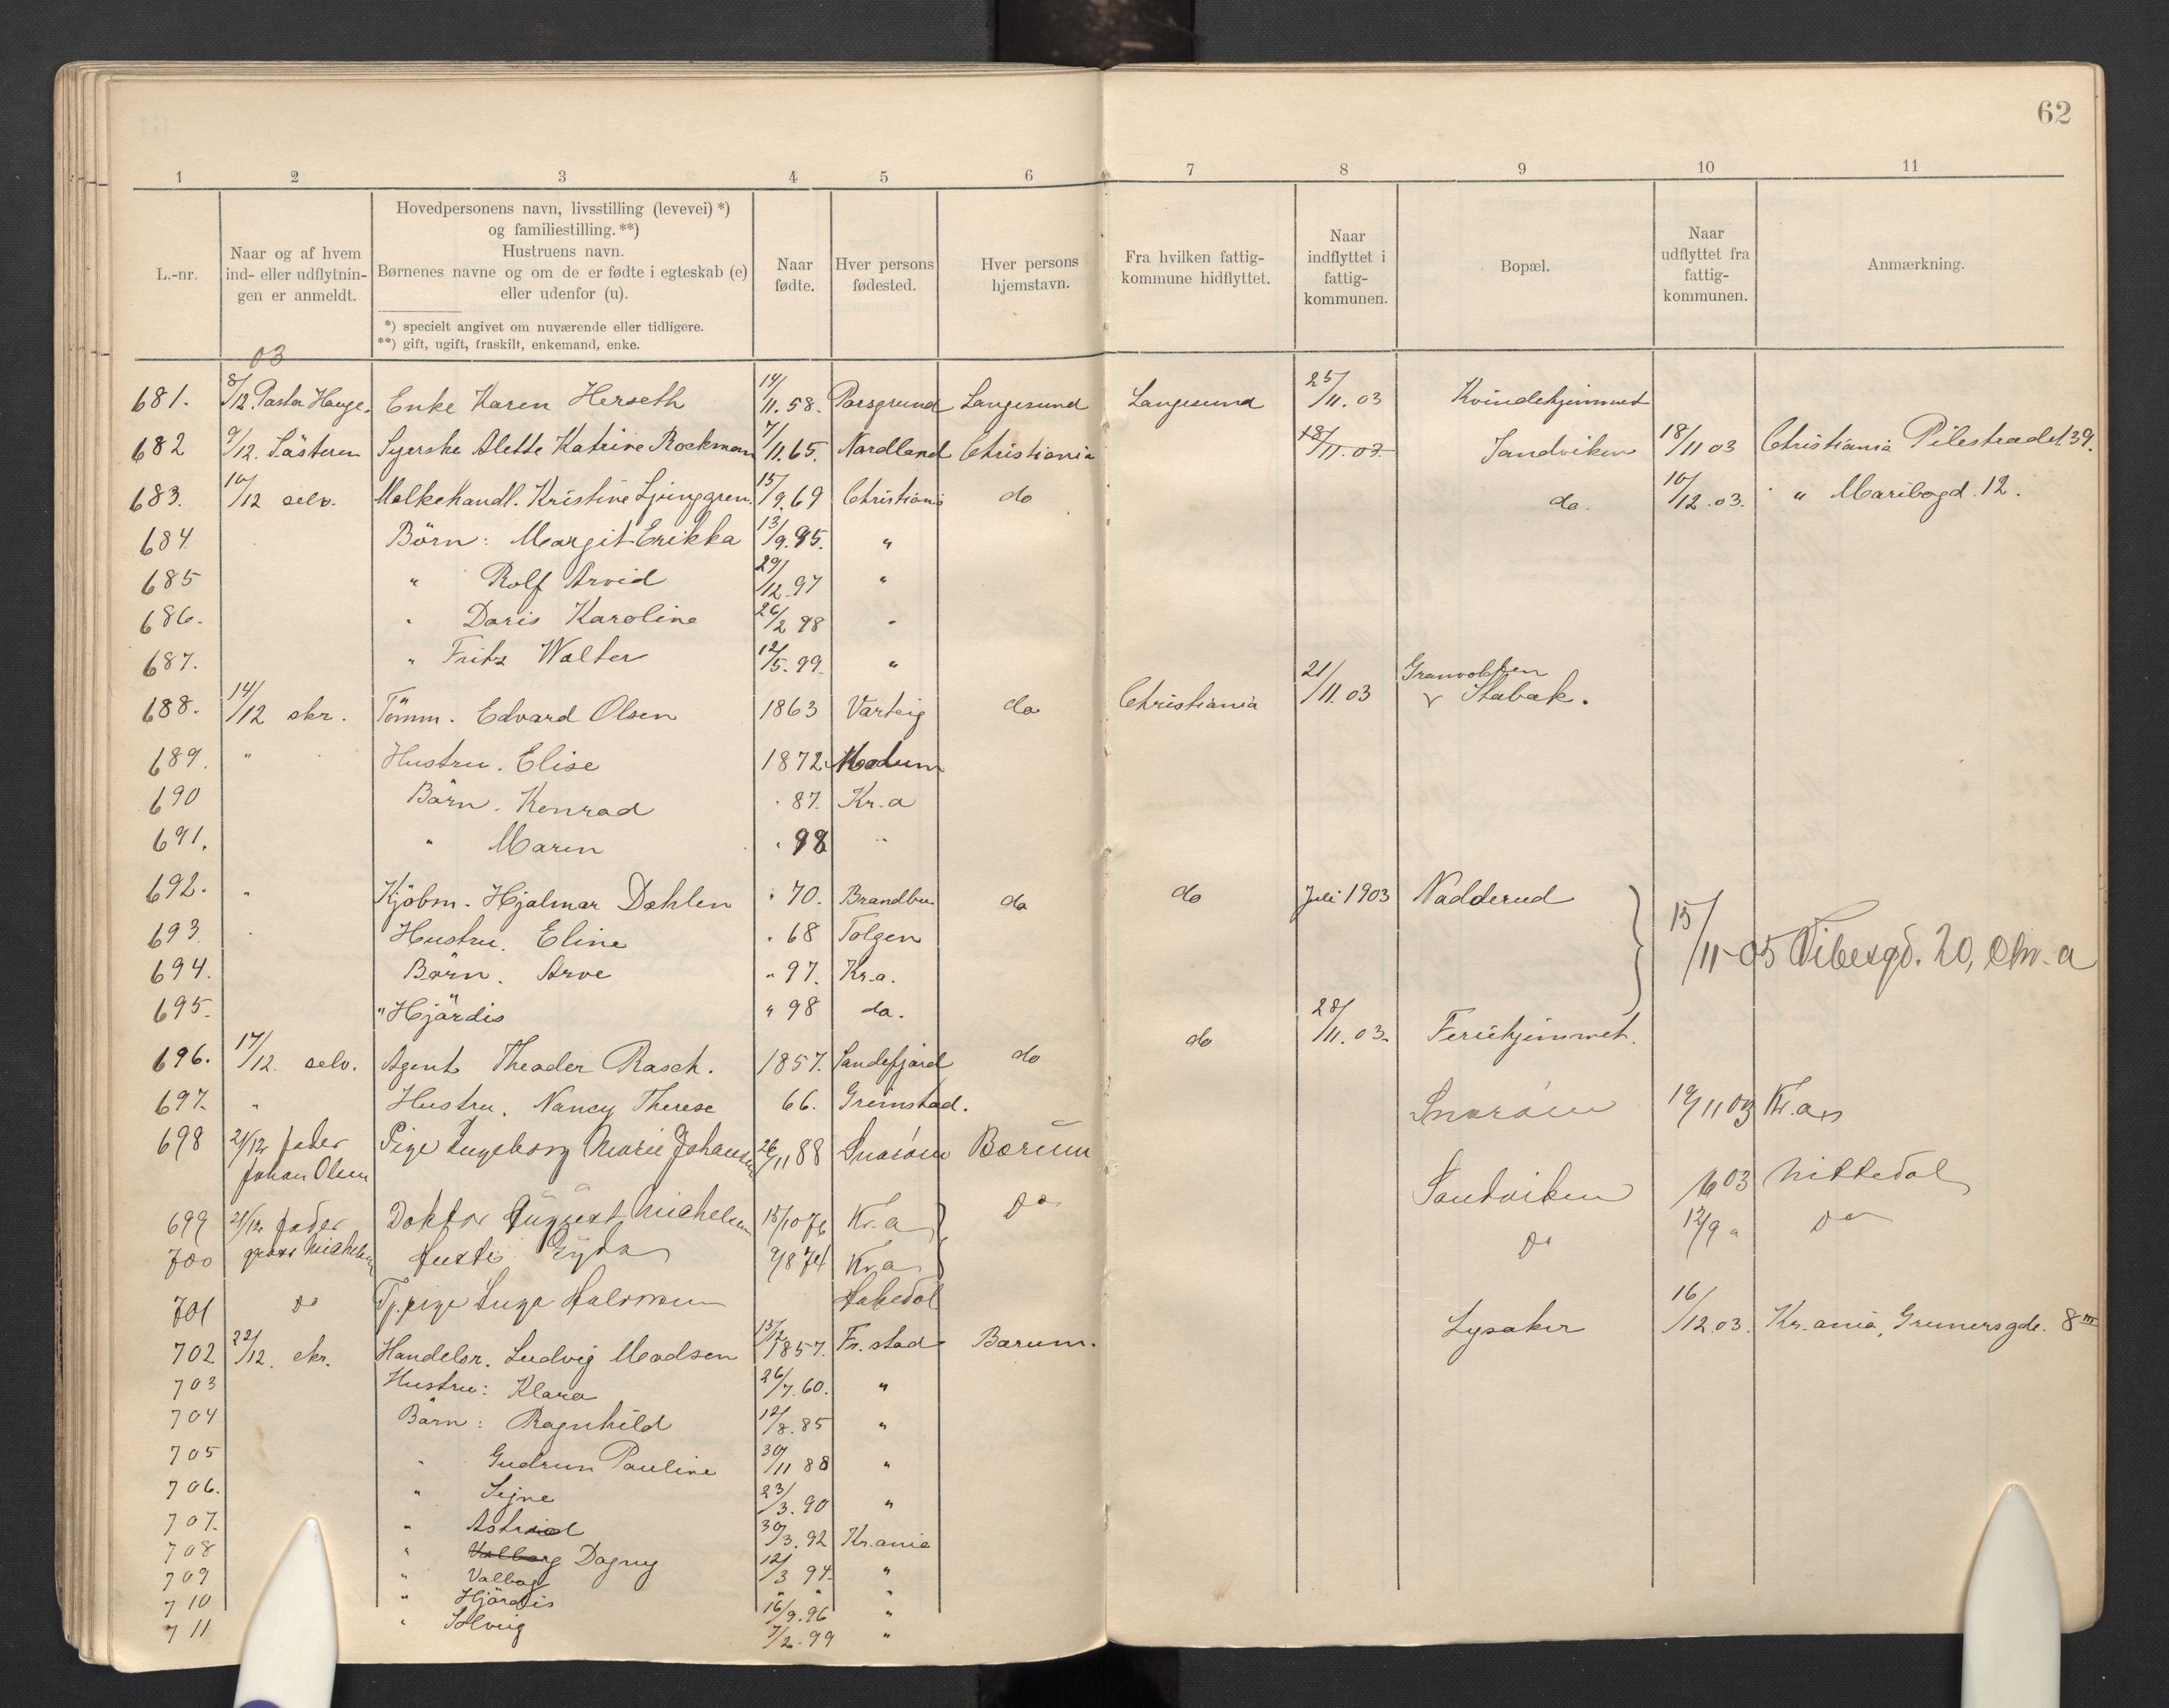 62
1 2 3 4 5 6 7 8 9 10 11
L.-nr.
Naar og af hvem
ind- eller udflytnin-
gen er anmeldt.
Hovedpersonens navn, livsstilling (levevei) *)
og familiestilling. **)
Hustruens navn.
Børnenes navne og om de er fødte i egteskab (e)
eller udenfor (u).
*) specielt angivet om nuværende eller tidligere.
**) gift, ugift, fraskilt, enkemand, enke.
Naar
fødte.
Hver persons
fødested.
Hver persons
hjemstavn.
Fra hvilken fattig-
kommune hidflyttet.
Naar
indflyttet i
fattig-
kommunen.
Bopæl.
Naar
udflyttet fra
fattig-
kommunen.
Anmærkning.
03
681. 8/12. Pastor Hauge. Enke Karen Herseth 14/11.58. Porsgrund Langesund Langesund 25/11.03 Kvindehjemmet
682 9/12. Sösteren Syerske Alette Katrine Rockman 7/11.65. Nordland Christiania 18/11.03 Sandviken 18/11 03 Christiania Pilestrædet 39.
683. 10/12 selv. Melkehandl. Kristine Ljunggren. 15/9.69 Christiania do do. 10/12.03. " Maribogd. 12.
684. Börn: Margit Erikka 13/9.95. "
685 " Rolf Arvid 29/12.97 "
686. " Doris Karoline 26/2 98 "
687. " Fritz Walter 12/5.99. "
688. 14/12 skr. Tömm. Edvard Olsen 1863 Varteig do Christiania 21/11.03 Granvolden v Stabæk.
689. " Hustru. Elise 1872 Modum
690 Börn. Konrad " 87. Kr.a
691. " Maren " 98 "
692. " Kjöbm. Hjalmar Dahlen " 70. Brandbu do do Juli 1903 Nadderud
693. Hustru. Eline " 68 Tolgen
694. Börn. Arve " 97. Kr.a.
15/11-05 Vibesgd. 20, Chr.a
695. " Hjördis " 98 do.
696. 17/12. selv. Agent Theodor Rasch. 1857. Sandefjord do do 28/11.03. Feriehjemmet.
697. " Hustru. Nancy Therese 66. Grimstad.
698 21/12 fader Johan Olsen Pige Ingeborg Marie Johansen 26/11 88 Snaröen Bærum Snaröen 19/11 03 Kr.a
699 21/12 fader Doktor August Michelsen 15/10 76 Kr.a Do Sandviken 03 Nittedal
700 Michelsen Hustr. 9/8 74 Kr.a Do 12/9 " Do
701 Do Tj.pige Inga Halvorsen Hakedal
702 22/12. skr. Handelsr. Ludvig Madsen 13/12 1857. Fr.stad Bærum. Lysaker 16/12.03. Kr.ania, Grunersgde. 8 III
703 Hustru: Klara 26/7.60. "
704 Börn: Ragnhild 12/8.85 "
705 " Gudrun Pauline 30/11 88 "
706. " Signe 23/3.90 "
707. " Astrid 30/3.92 Kr.ania
708 " Valborg Dagny 12/3 94. "
709 " Valborg " " "
710 " Hjördis 16/9.96 "
711 " Solveig 7/2.99 "